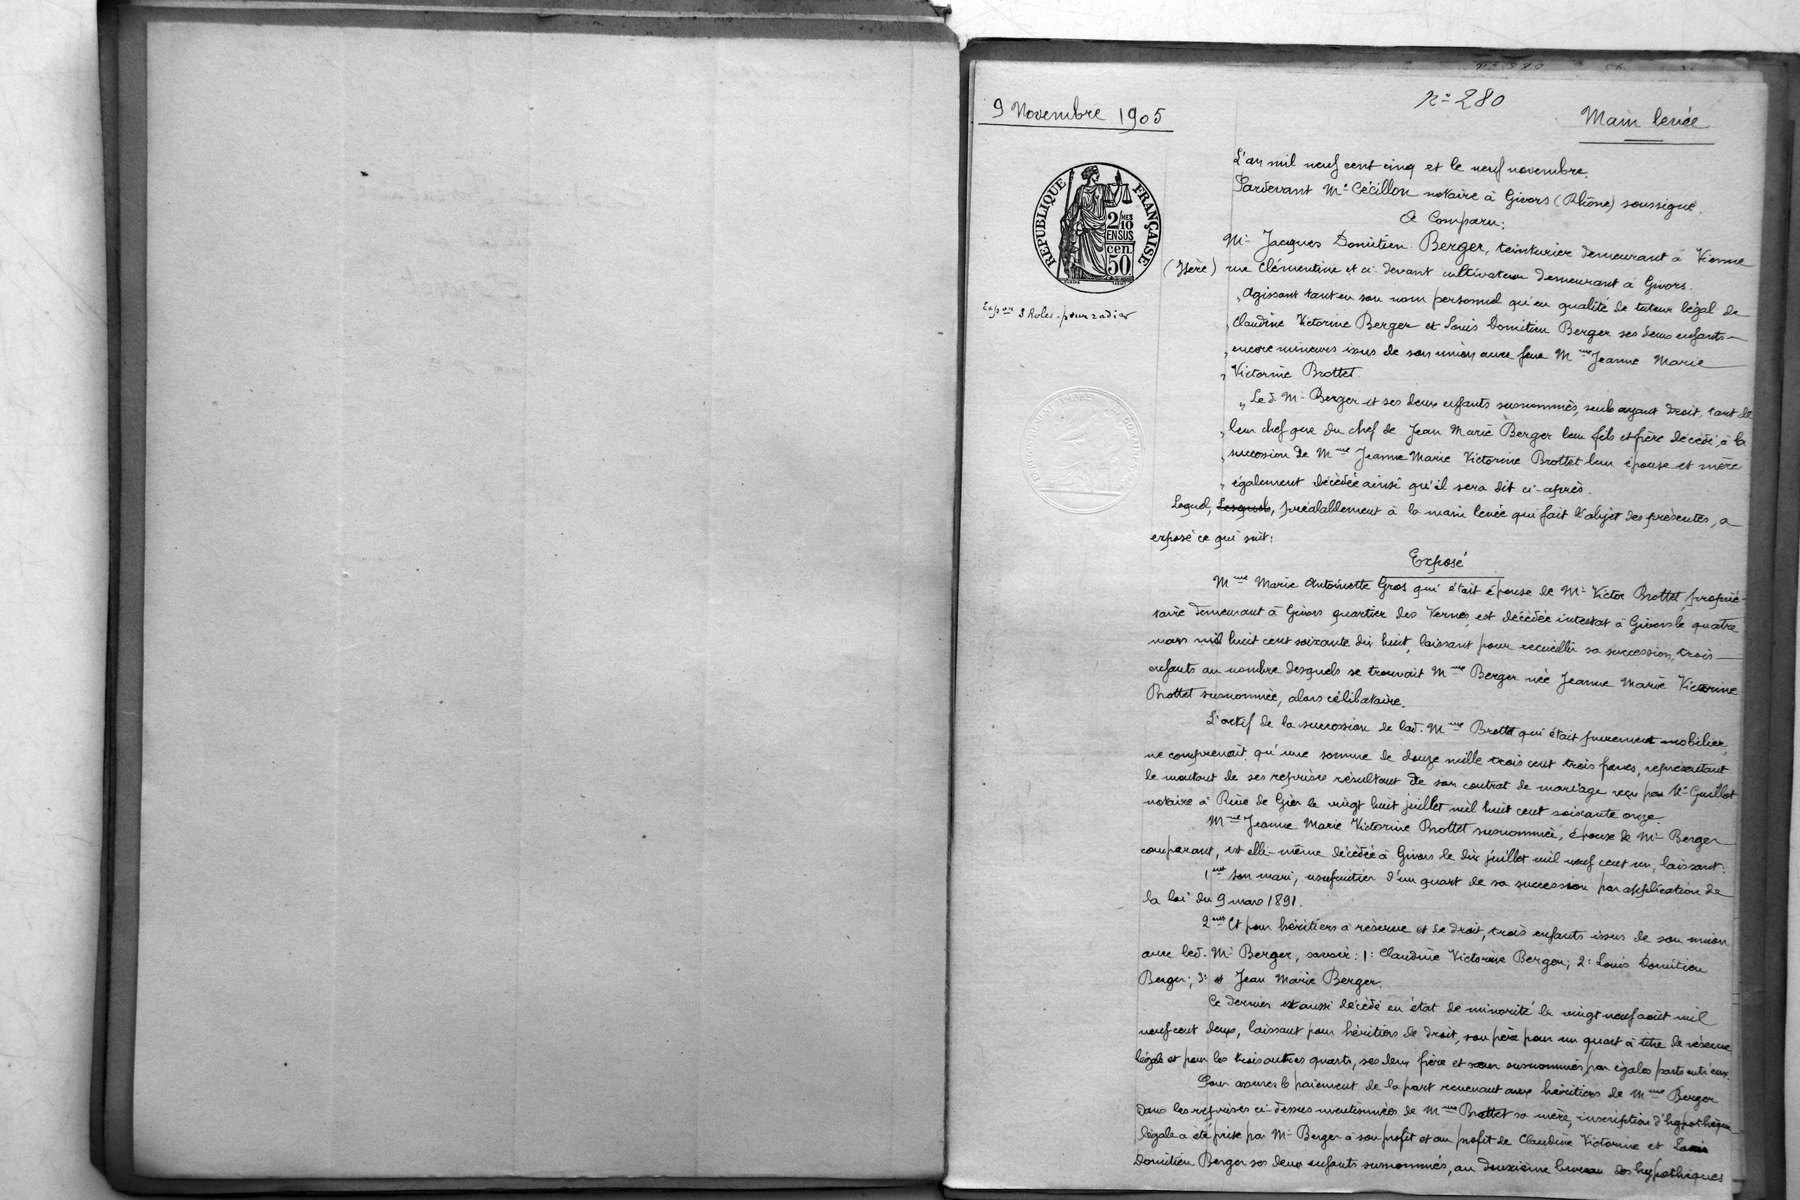 9 Novembre 1905
nº 280
Main levée
RÉPUBLIQUE FRANÇAISE
2/10 MES
EN SUS
cen. 50
Expon 3 Roles pour radier
L'an mil neuf cent cinq et le neuf novembre.
Pardevant Me Cécillon notaire à Givors (Rhône) soussigné.
A Comparu:
Mr Jacques Domitien Berger, teinturier demeurant à Vienne
(Isère) rue Clémentine et ci-devant cultivateur demeurant à Givors.
„ Agissant tant en son nom personnel qu'en qualité de tuteur légal de
„ Claudine Victorine Berger et Louis Domitien Berger ses deux enfants
„ encore mineurs issus de son union avec feue Mme Jeanne Marie
„ Victorine Brottet.
„ Le d. Mr Berger et ses deux enfants susnommés, seuls ayant droit, tant de
„ leur chef que du chef de Jean Marie Berger leur fils et frère décédé, à la
„ succession de Mme Jeanne Marie Victorine Brottet leur épouse et mère
„ également décédée ainsi qu'il sera dit ci-après.
Lequel, Lesquels, préalablement à la main levée qui fait l'objet des présentes, a
exposé ce qui suit:
Exposé
Mme Marie Antoinette Gros qui était épouse de Mr Victor Brottet, proprié-
taire demeurant à Givors quartier des Vernes, est décédée intestat à Givors le quatre
mars mil huit cent soixante dix huit, laissant pour recueillir sa succession, trois
enfants au nombre desquels se trouvait Mme Berger née Jeanne Marie Victorine
Brottet susnommée, alors célibataire.
L'actif de la succession de lad. Mme Brottet qui était purement mobilier,
ne comprenait qu'une somme de douze mille trois cent trois francs, représentant
le montant de ses reprises résultant de son contrat de mariage reçu par Me Guillot
notaire à Rive de Gier le vingt huit juillet mil huit cent soixante onze.
Mme Jeanne Marie Victorine Brottet susnommée, épouse de Mr Berger
comparant, est elle-même décédée à Givors le dix juillet mil neuf cent un, laissant:
1ent son mari, usufruitier d'un quart de sa succession par application de
la loi du 9 mars 1891.
2ent Et pour héritiers à réserve et de droit, trois enfants issus de son union
avec led. Mr Berger, savoir: 1º Claudine Victorine Berger; 2º Louis Domitien
Berger; 3º et Jean Marie Berger.
Ce dernier est aussi décédé en état de minorité le vingt neuf août mil
neuf cent deux, laissant pour héritiers de droit, son père pour un quart à titre de réserve
légale et pour les trois autres quarts, ses deux frère et sœur susnommés, par égales parts entr'eux.
Pour assurer le paiement de la part revenant aux héritiers de Mme Berger
dans les reprises ci-dessus mentionnées de Mme Brottet sa mère, inscription d'hypothèque
légale a été prise par Mr Berger à son profit et au profit de Claudine Victorine et Louis
Domitien Berger ses deux enfants susnommés, au deuxième bureau des hypothèques